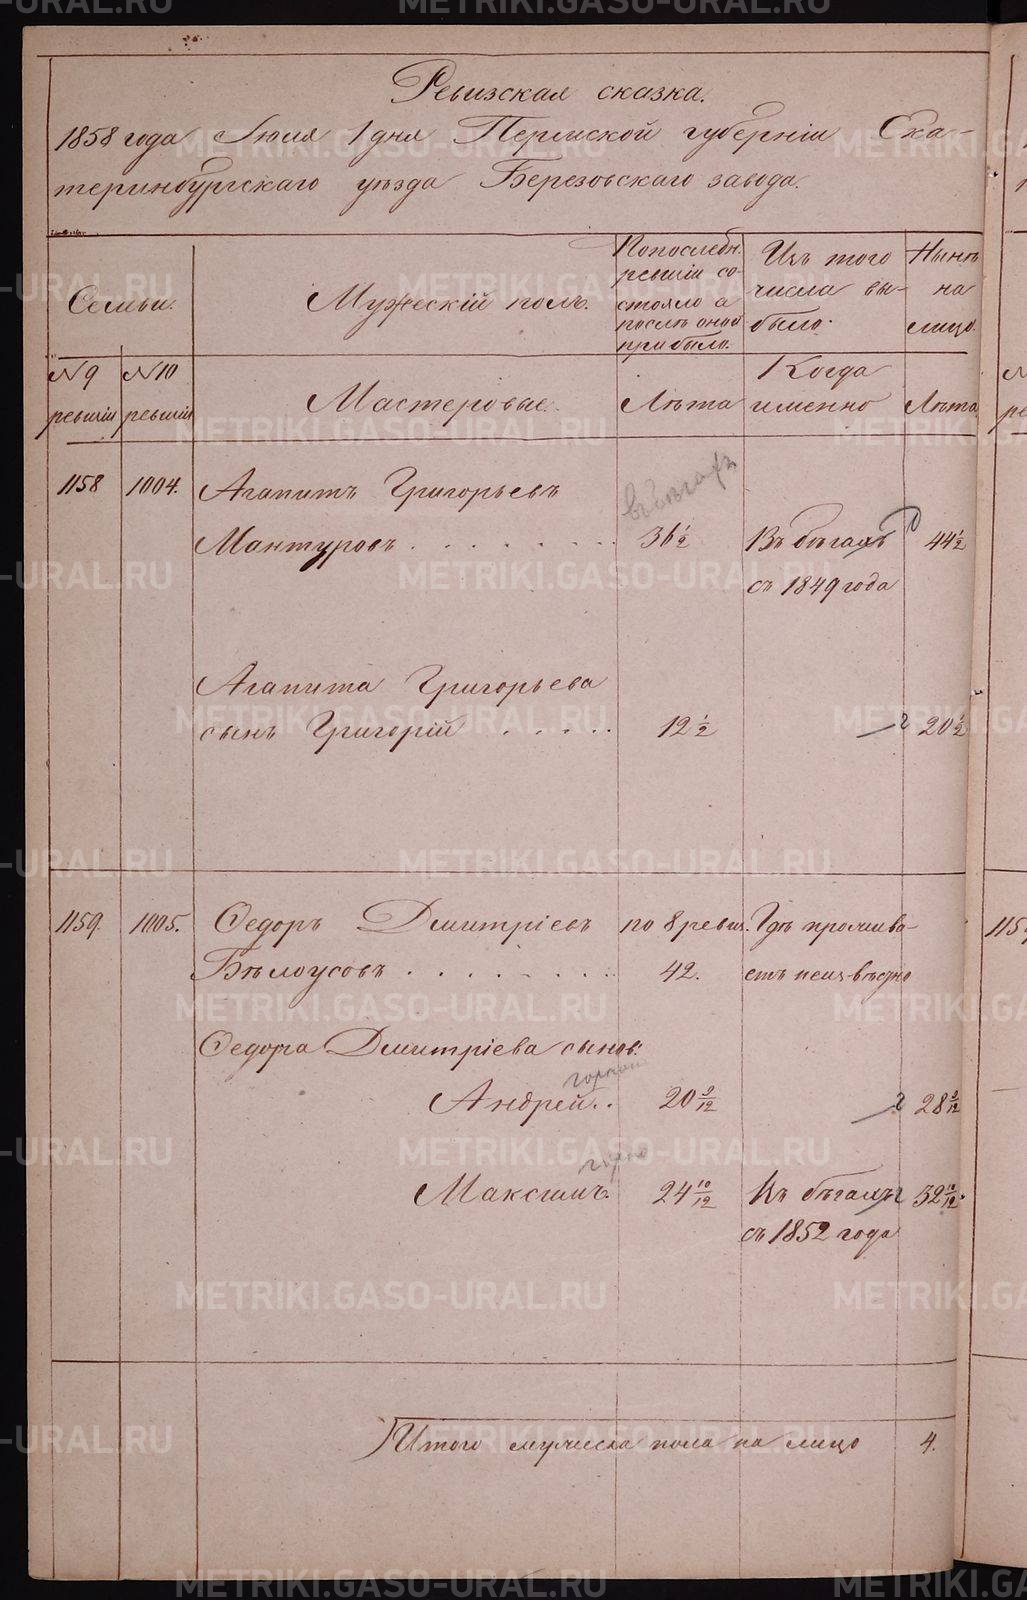 Ревизская сказка.
1858 года Июня 1 дня Пермской губерніи Ека-
теринбургскаго уѣзда Березовскаго завода.
Семьи.
Мужескій полъ.
По послѣдн.
ревизіи со-
стояло а
послѣ оной
прибыло.
Изъ того
числа вы-
было.
Нынѣ
на
лицо.
№ 9
ревизіи
№ 10
ревизіи
Мастеровые.
Лѣта
Когда
именно
Лѣта
1158 1004. Агапитъ Григорьевъ
въ бѣгахъ
Мантуровъ 36 1/2 Въ бѣгахъ 44 1/2
съ 1849 года
Агапита Григорьева
сынъ Григорій 12 1/2 20 1/2
1159. 1005. Ѳедоръ Дмитріевъ по 8 ревиз. Гдѣ прожива-
Бѣлоусовъ 42. етъ неизвѣстно
Ѳедора Дмитріева сынов:
Андрей 20 9/12 28 9/12
Максимъ. 24 10/12 Въ бѣгахъ 32 10/12.
съ 1852 года
Итого мужеска пола на лицо 4.
115
METRIKI.GASO-URAL.RU